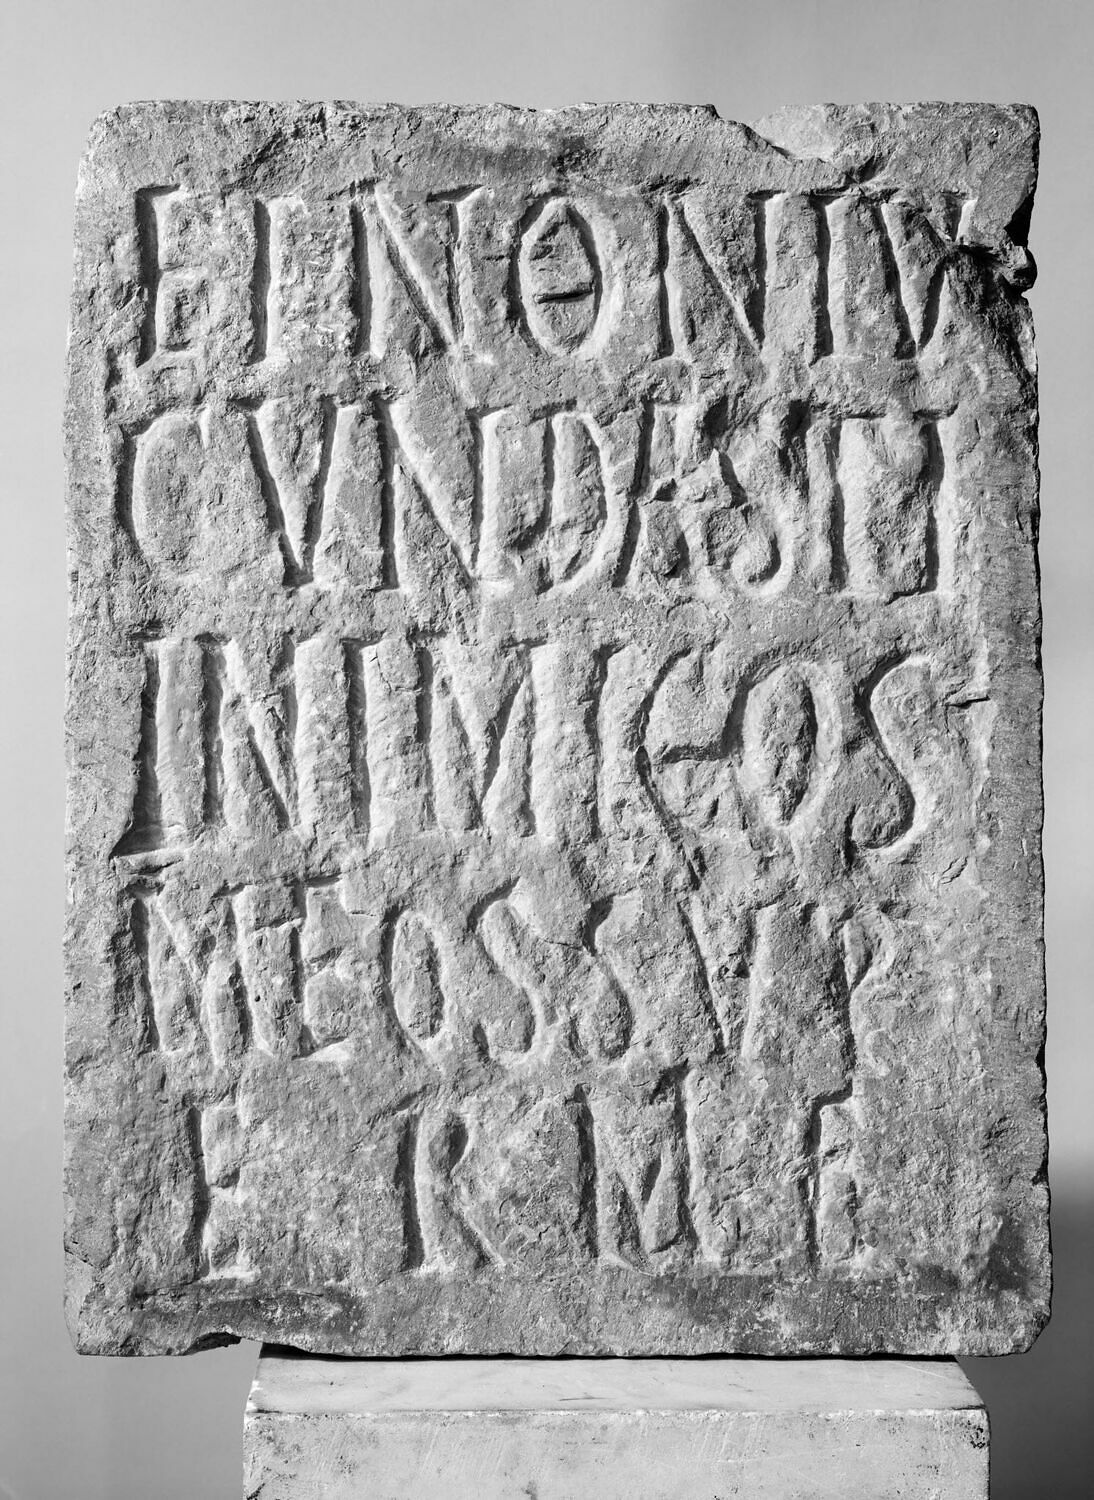 ET NON IV
CVNDASTI
INIMICOS
MEOS SVP
ER ME